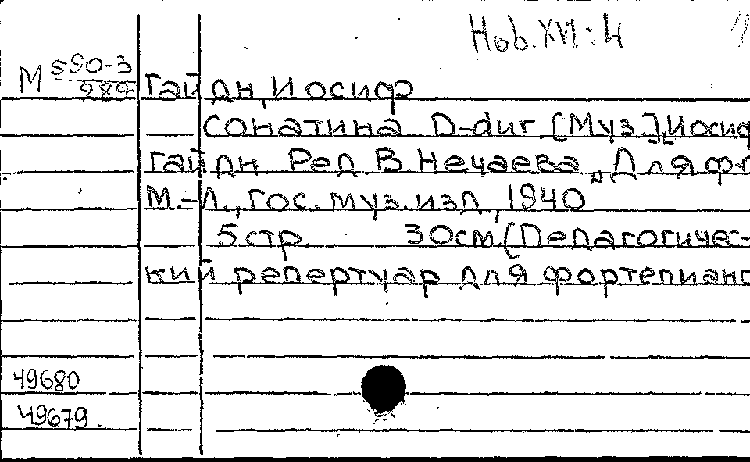 Hob. XVI: 4
М 590-3
989
Гайдн, Иосиф
Сонатина D-dur [Муз.], Иосиф
Гайдн Ред. В. Нечаева. Для ф-п
М.-Л., Гос. муз. изд., 1940
5 стр. 30 см. (Педагогичес-
кий репертуар для фортепиано
49680
49679.